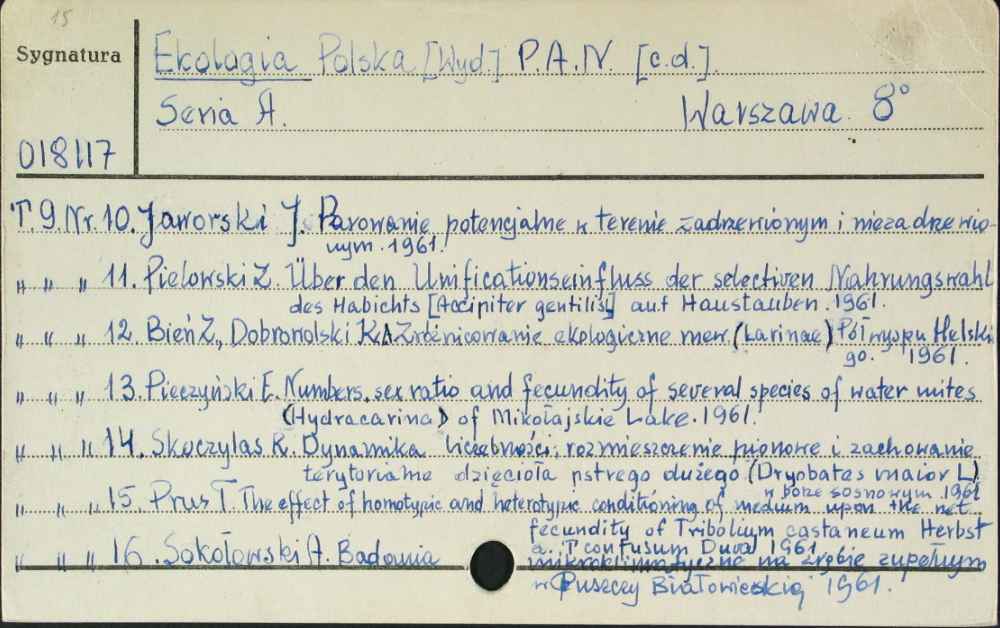 15
Sygnatura
Ekologia Polska [Wyd.] P.A.N. [c.d.].
Seria A. Warszawa 8°
018117
T. 9. Nr. 10. Jaworski J. Parowanie potencjalne w terenie zadrzewionym i niezadrzewio-
nym. 1961.
" " " 11. Pielowski Z. Über den Unificationseinfluss der selectiven Nahrungswahl
des Habichts [Accipiter gentilis] auf Haustauben. 1961.
" " " 12. Bień Z., Dobrowolski K.A. Zróżnicowanie ekologiczne mew (Larinae) Półwyspu Helski
go. 1961.
" " " 13. Pieczyński E. Numbers, sex ratio and fecundity of several species of water mites
(Hydracarina) of Mikołajskie Lake. 1961.
" " " 14. Skoczylas R. Dynamika liczebności, rozmieszczenie pionowe i zachowanie
terytorialne dzięcioła pstrego dużego (Dryobates maior L)
w borze sosnowym 1961
" " " 15. Prus T. The effect of homotypic and heterotypic conditioning of medium upon the net
fecundity of Tribolium castaneum Herbst
a. T confusum Duval 1961
" " " 16. Sokołowski A. Badania mikroklimatyczne na zrębie zupełnym
w Puszczy Białowieskiej 1961.